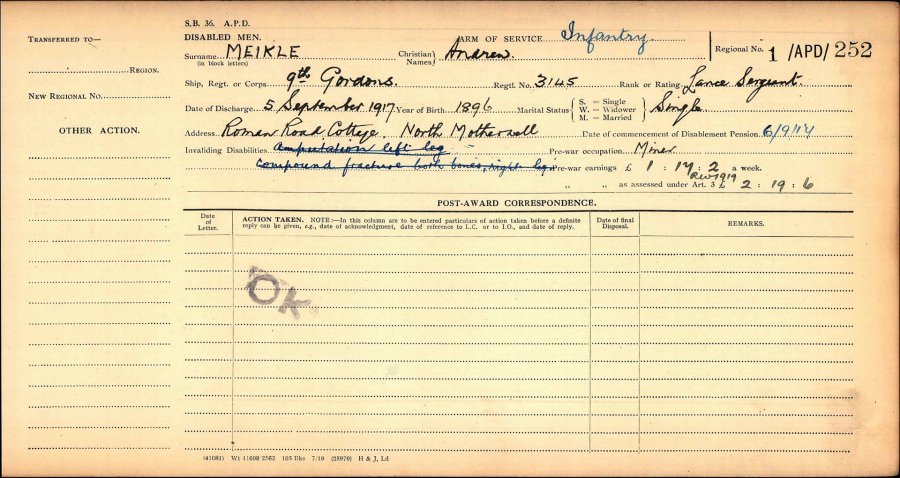 S.B. 36. A.P.D.
TRANSFERRED TO
REGION.
NEW REGIONAL NO.
OTHER ACTION.
DISABLED MEN. ARM OF SERVICE Infantry
Surname MEIKLE Christian Names Andrew.
(in block letters)
Regional No. 1 /APD/ 252
Ship, Regt. or Corps. 9th Gordons. Regtl. No. 3145 Rank or Rating. Lance Sergeant.
Date of Discharge. 5 September 1917 Year of Birth. 1896 Marital Status { S. — Single W. — Widower M. — Married } Single
Address. Roman Road Cottage. North Motherwell Date of commencement of Disablement Pension. 6/9/17
Invaliding Disabilities. amputation left leg Pre-war occupation. Miner
compound fracture both bones, right leg. Pre-war earnings £ 1 : 17 : 2 a week.
RW 1919
„ „ as assessed under Art. 3 £ 2 : 19 : 6
POST-AWARD CORRESPONDENCE.
Date of Letter.
ACTION TAKEN. NOTE:—In this column are to be entered particulars of action taken before a definite reply can be given, e.g., date of acknowledgment, date of reference to L.C. or to I.O., and date of reply.
Date of final Disposal.
REMARKS.
OK
(41081) Wt 11699 2562 105 Bks 7/19 (25979) H & J, Ld